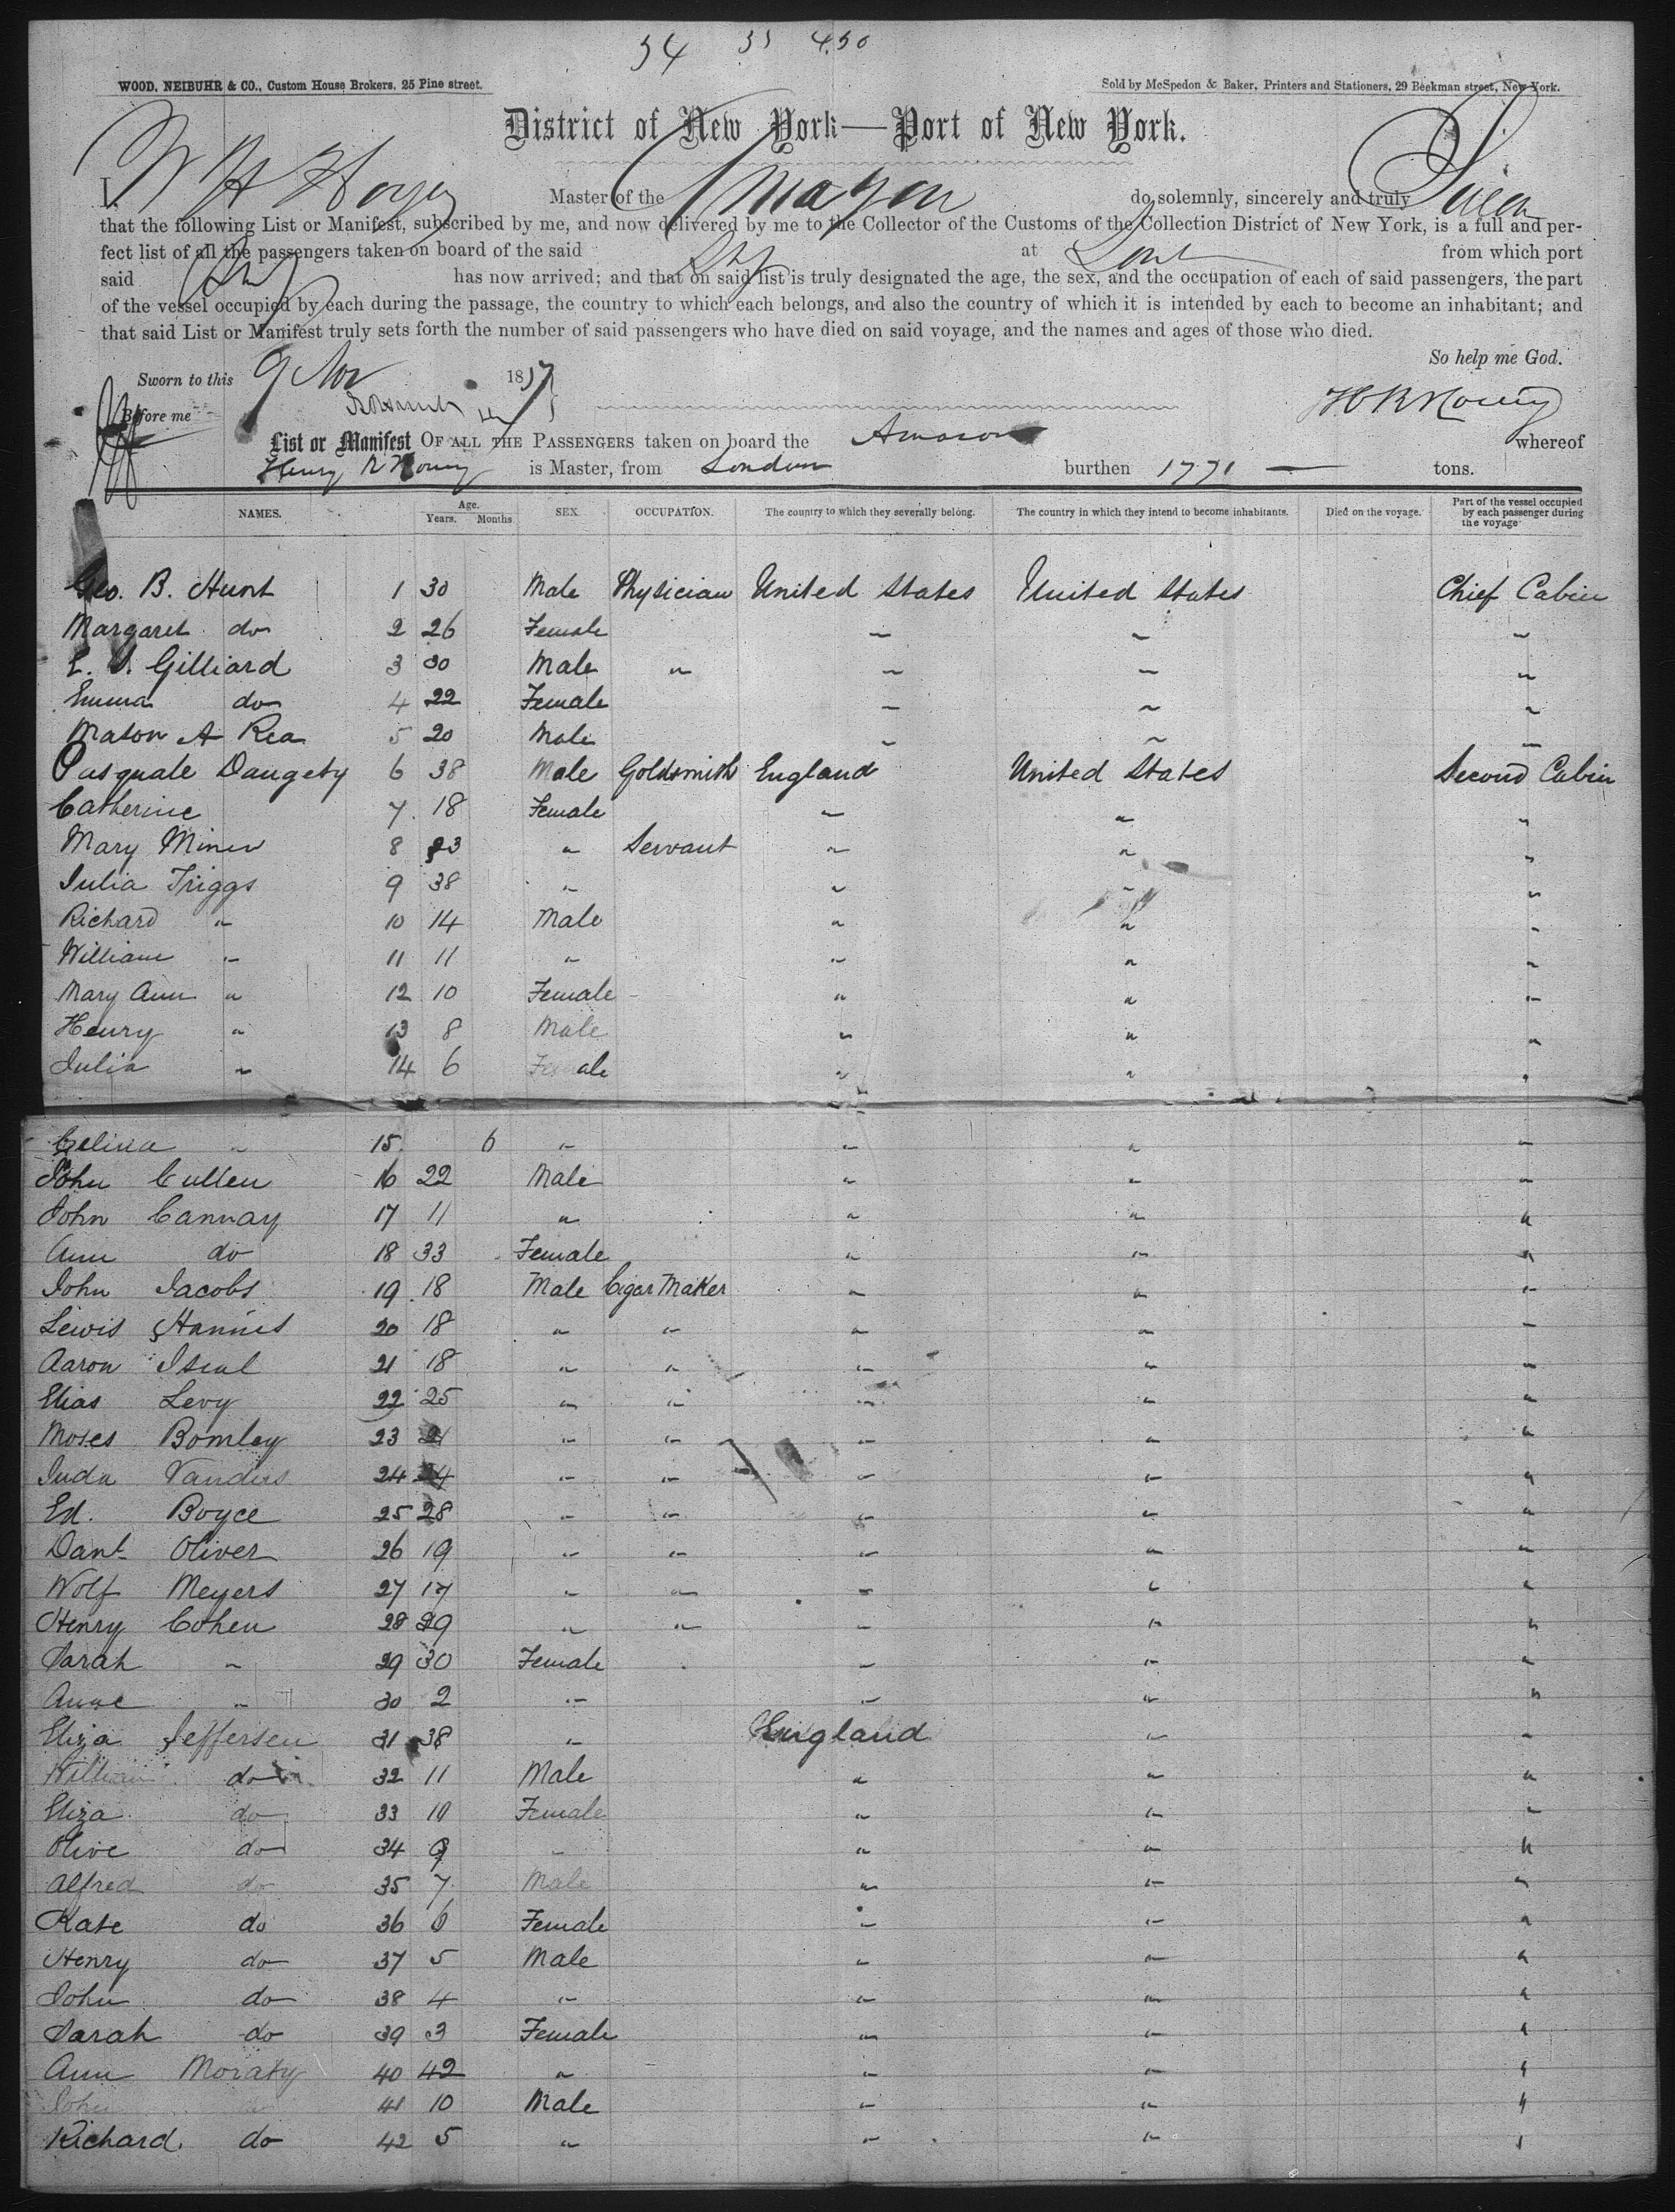 34 33 450
WOOD, NEIBUHR & CO., Custom House Brokers, 25 Pine street.
Sold by McSpedon & Baker, Printers and Stationers, 29 Beekman street, New York.
District of New York—Port of New York.
I, Master of the Amazon do solemnly, sincerely and truly Swear
that the following List or Manifest, subscribed by me, and now delivered by me to the Collector of the Customs of the Collection District of New York, is a full and per-
fect list of all the passengers taken on board of the said Ship at Lond from which port
said Ship has now arrived; and that on said list is truly designated the age, the sex, and the occupation of each of said passengers, the part
of the vessel occupied by each during the passage, the country to which each belongs, and also the country of which it is intended by each to become an inhabitant; and
that said List or Manifest truly sets forth the number of said passengers who have died on said voyage, and the names and ages of those who died.
So help me God.
Sworn to this 9 Nov 1857
Before me
List or Manifest OF ALL THE PASSENGERS taken on board the Amazon whereof
Henry R Hovey is Master, from London burthen 1771 — tons.
NAMES. Age. Years. Months SEX OCCUPATION. The country to which they severally belong. The country in which they intend to become inhabitants. Died on the voyage. Part of the vessel occupied by each passenger during the voyage
Geo. B. Hunt 1 30 Male Physician United States United States Chief Cabin
Margaret do 2 26 Female " " "
Gilliard 3 30 Male " " " "
Emma do 4 22 Female " " "
Mason A Rea 5 20 Male " " "
Pasquale Daugety 6 38 Male Goldsmith England United States Second Cabin
Catherine 7 18 Female " " "
Mary Miner 8 23 " Servant " " "
Julia Triggs 9 38 " " " "
Richard " 10 14 Male " " "
William " 11 11 " " " "
Mary Ann " 12 10 Female " " "
Henry " 13 8 Male " " "
Julia " 14 6 Female " " "
Celina " 15 6 " " " "
John Cullen 16 22 Male " " "
John Cannay 17 11 " " " "
Ann do 18 33 Female " " "
John Jacobs 19 18 Male Cigar Maker " " "
Lewis Hannes 20 18 " " " " "
Aaron Iseal 21 18 " " " " "
Elias Levy 22 25 " " " " "
Moses Bomley 23 21 " " " " "
Juda Vanders 24 24 " " " " "
Ed. Boyce 25 28 " " " " "
Danl Oliver 26 19 " " " " "
Wolf Meyers 27 17 " " " " "
Henry Cohen 28 29 " " " " "
Sarah " 29 30 Female " " "
Anne " 30 2 " " " "
Eliza Jeffersen 31 38 " England " "
William do 32 11 Male " " "
Eliza do 33 10 Female " " "
Olive do 34 9 " " " "
Alfred do 35 7 Male " " "
Kate do 36 6 Female " " "
Henry do 37 5 Male " " "
John do 38 4 " " " "
Sarah do 39 3 Female " " "
Ann Moraty 40 42 " " " "
John do 41 10 Male " " "
Richard. do 42 5 " " " "